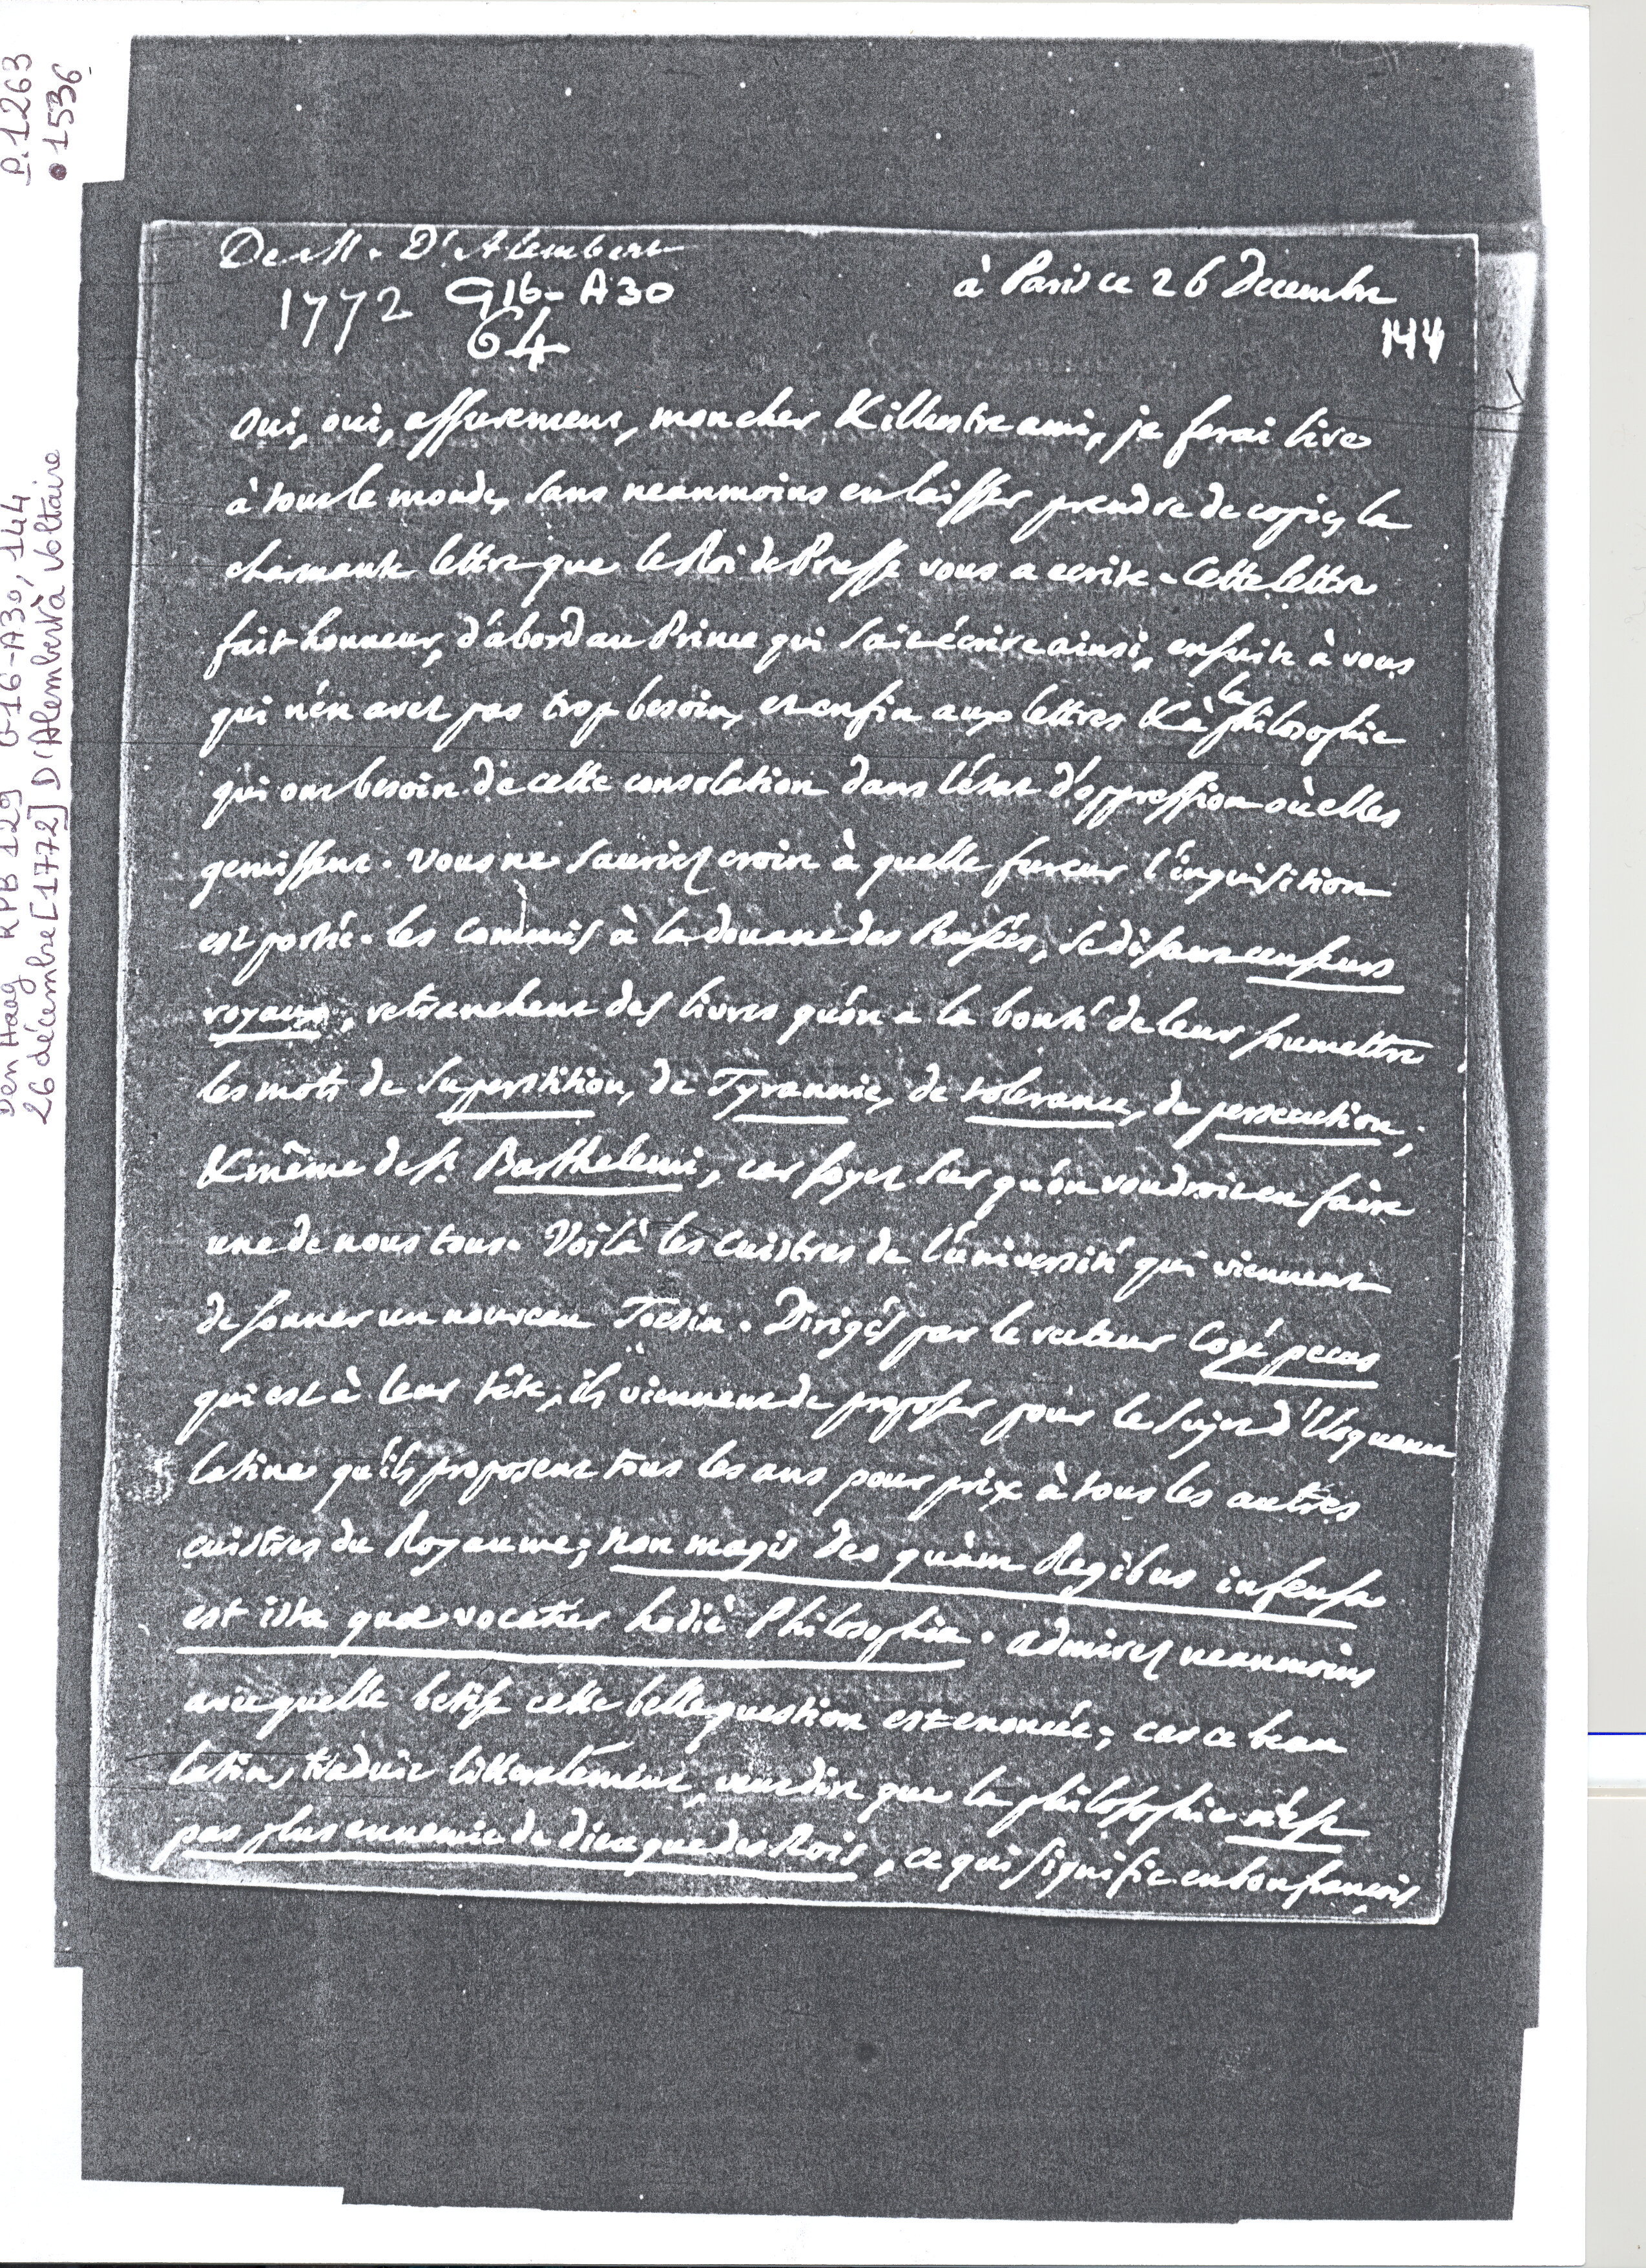 P.1263
1536
Den Haag RPB 129 G16-A30, 144
26 décembre [1772] D'Alembert à Voltaire
De M. D'Alembert
à Paris ce 26 Decembre
1772 G16-A30
64
144
Oui, oui, assurement, mon cher & illustre ami, je ferai lire
à tout le monde, sans neanmoins en laisser prendre de copie, la
charmante lettre que le Roi de Prusse vous a ecrite. Cette lettre
fait honneur, d'abord au Prince qui sait écrire ainsi, ensuite à vous
qui n'en avez pas trop besoin, et enfin aux lettres & à la philosophie
qui ont besoin de cette consolation dans l'état d'oppression où elles
gemissent. Vous ne sauriez croire à quelle fureur l'inquisition
est portée. les commis à la douane des Pensées, se disant censeurs
royaux, retranchent des livres qu'on a la bonté de leur soumettre
les mots de superstition, de Tyrannie, de tolerance, de persecution,
& même de St. Barthelemi, car soyez sur qu'on voudroit en faire
une de nous tous. Voilà les cuistres de l'université qui viennent
de sonner un nouveau Tocsin. Dirigés par le recteur Cogé pecus
qui est à leur tête, ils viennent de proposer pour le sujet d'Eloquence
latine qu'ils proposent tous les ans pour prix à tous les autres
cuistres du Royaume; non magis deo quàm Regibus infensa
est ista quae vocatur hodiè Philosophia. admirez neanmoins
avec quelle betise cette belle question est enoncée; car ce beau
latin, traduit litteralement, veut dire que la philosophie n'est
pas plus ennemie de dieu que des Rois, ce qui signifie en bon françois